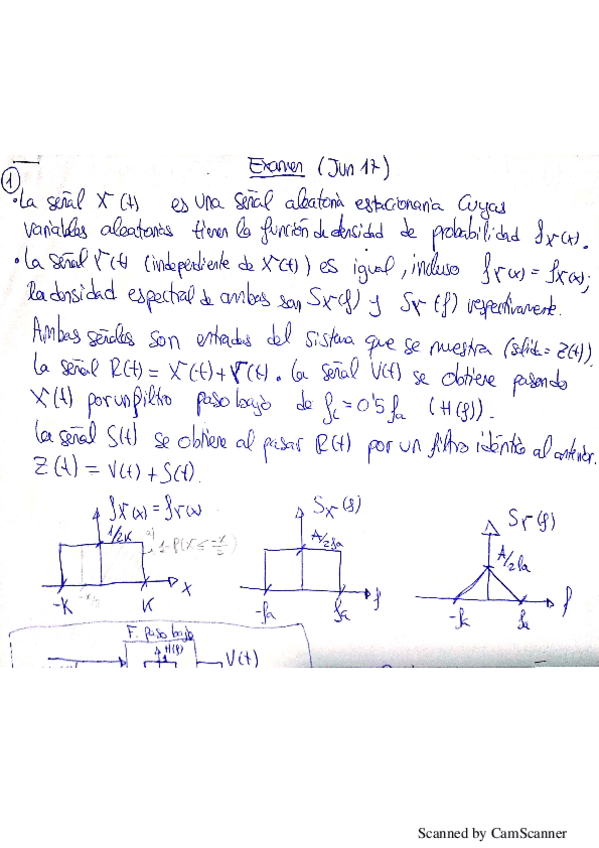 Examen (Jun 17)
1
• La señal X(t) es una señal aleatoria estacionaria cuyas
variables aleatorias tienen la función de densidad de probabilidad fx(x).
• La señal Y(t) (independiente de X(t)) es igual, incluso fY(x) = fx(x);
la densidad espectral de ambas son Sx(f) y SY(f) respectivamente.
Ambas señales son entradas del sistema que se muestra (salida = Z(t)).
La señal R(t) = X(t) + Y(t). La señal V(t) se obtiene pasando
X(t) por un filtro paso bajo de fc = 0'5 fa (H(f)).
La señal S(t) se obtiene al pasar R(t) por un filtro idéntico al anterior.
Z(t) = V(t) + S(t).
fx(x) = fY(x) Sx(f) SY(f)
1/2K A/2fa A/2fa
-K K x -fa fa f fa f
F. paso bajo
H(f) V(t)
Scanned by CamScanner